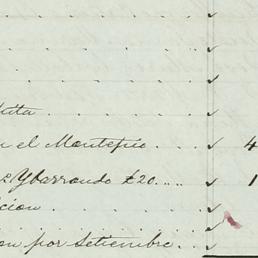 n el Montepío 4
Ybarrondo £20 1
cion
on por Setiembre